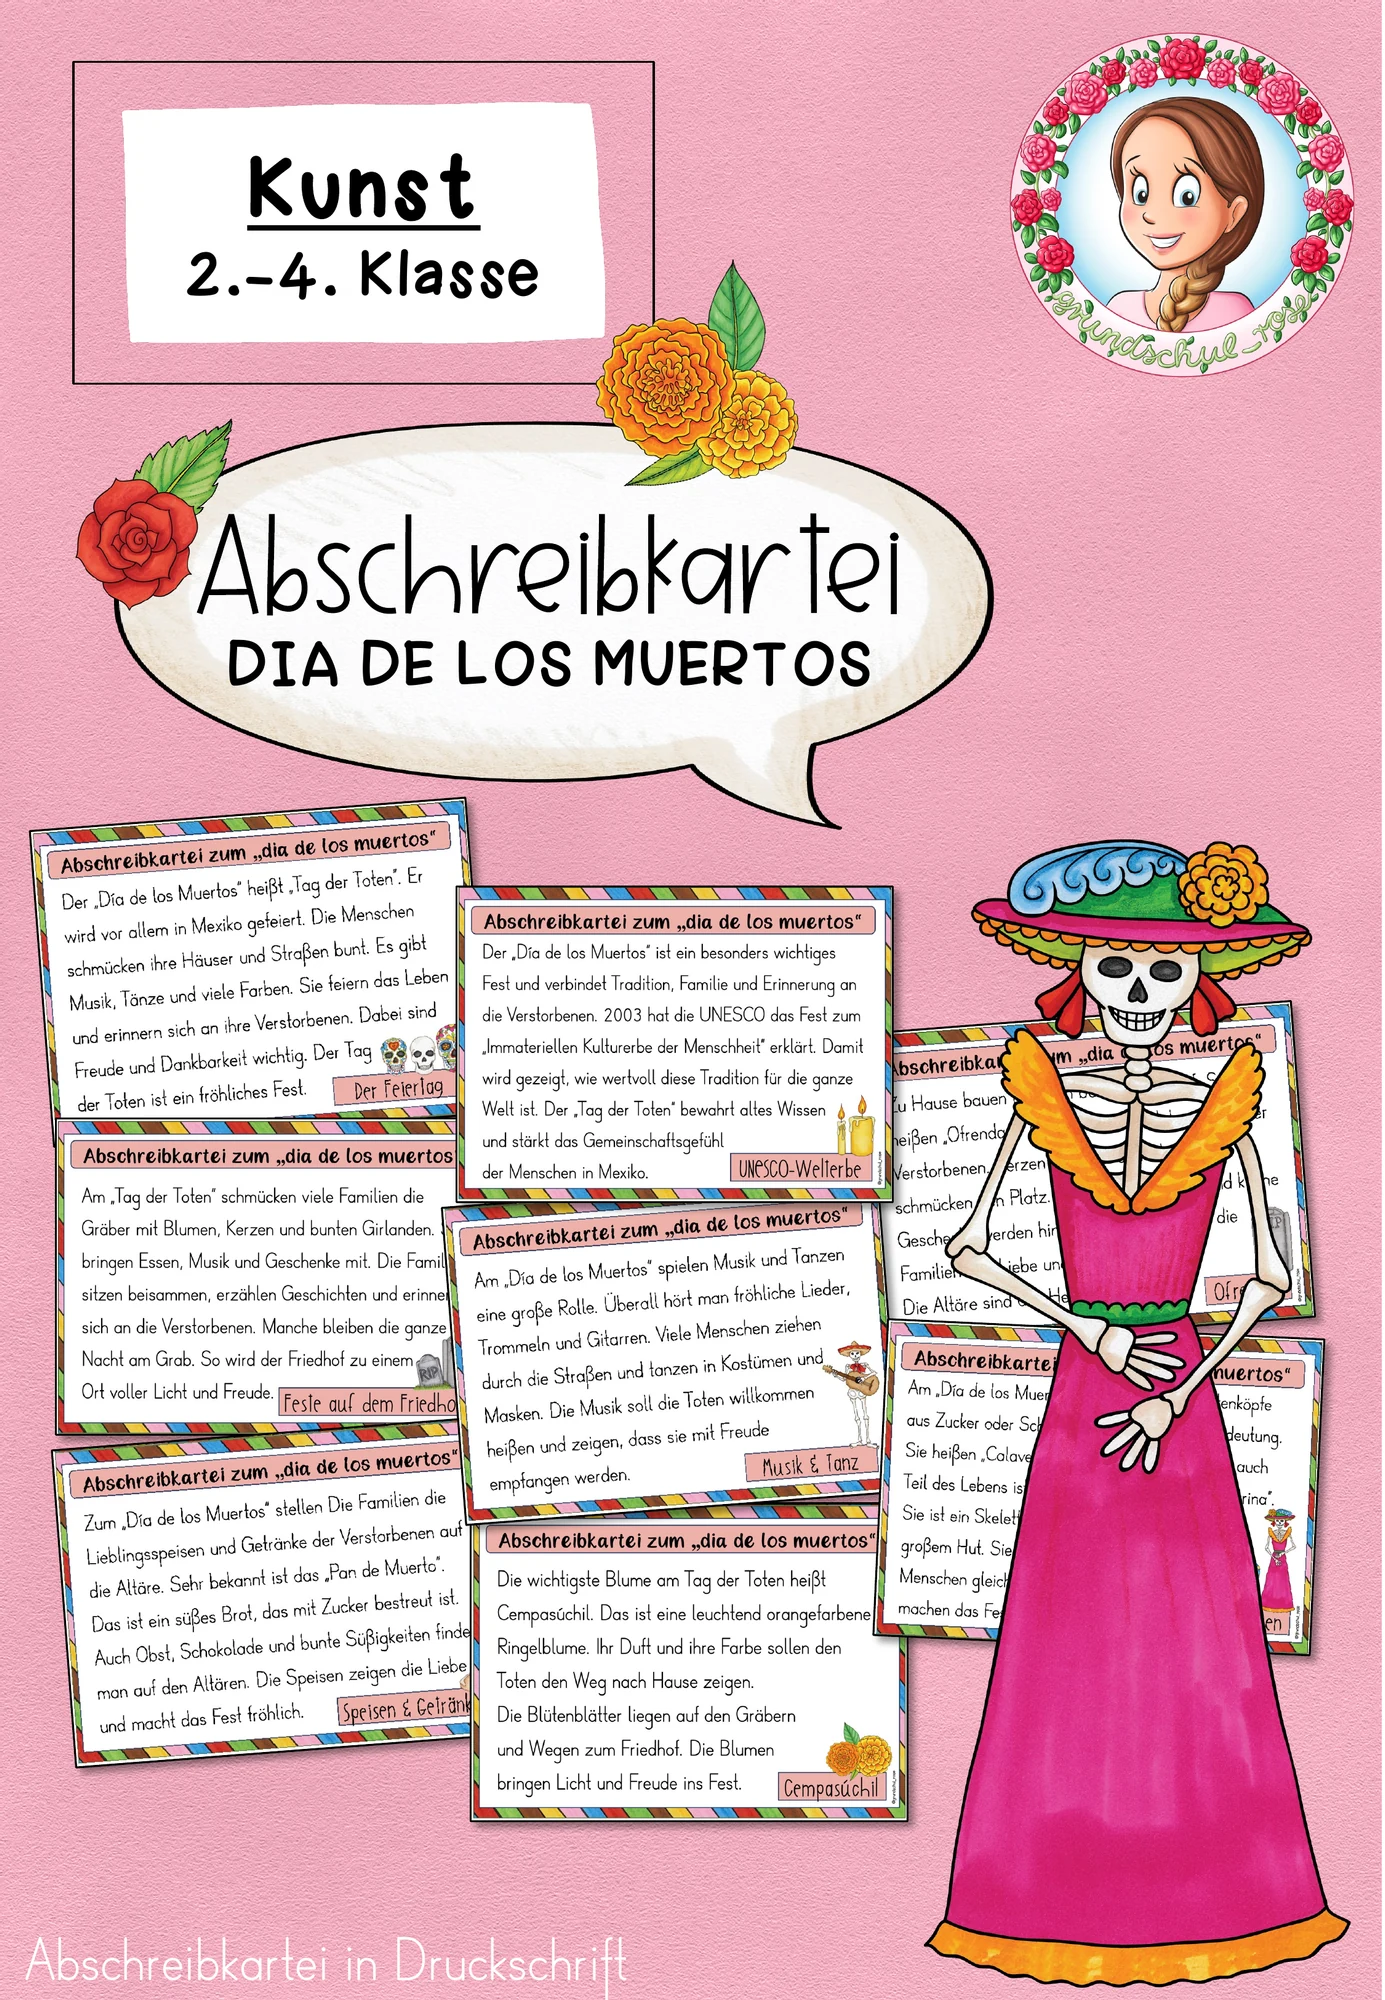 Kunst
2.-4. Klasse
grundschul_rose
Abschreibkartei
DIA DE LOS MUERTOS
Abschreibkartei zum „dia de los muertos“
Der „Día de los Muertos“ heißt „Tag der Toten“. Er
wird vor allem in Mexiko gefeiert. Die Menschen
schmücken ihre Häuser und Straßen bunt. Es gibt
Musik, Tänze und viele Farben. Sie feiern das Leben
und erinnern sich an ihre Verstorbenen. Dabei sind
Freude und Dankbarkeit wichtig. Der Tag
der Toten ist ein fröhliches Fest.
Der Feiertag
Abschreibkartei zum „dia de los muertos“
Der „Día de los Muertos“ ist ein besonders wichtiges
Fest und verbindet Tradition, Familie und Erinnerung an
die Verstorbenen. 2003 hat die UNESCO das Fest zum
„Immateriellen Kulturerbe der Menschheit“ erklärt. Damit
wird gezeigt, wie wertvoll diese Tradition für die ganze
Welt ist. Der „Tag der Toten“ bewahrt altes Wissen
und stärkt das Gemeinschaftsgefühl
der Menschen in Mexiko.
UNESCO-Welterbe
Abschreibkartei zum „dia de los muertos
Am „Tag der Toten“ schmücken viele Familien die
Gräber mit Blumen, Kerzen und bunten Girlanden.
bringen Essen, Musik und Geschenke mit. Die Famil
sitzen beisammen, erzählen Geschichten und erinner
sich an die Verstorbenen. Manche bleiben die ganze
Nacht am Grab. So wird der Friedhof zu einem
Ort voller Licht und Freude.
RIP
Feste auf dem Friedho
Abschreibkartei zum „dia de los muertos“
Am „Día de los Muertos“ spielen Musik und Tanzen
eine große Rolle. Überall hört man fröhliche Lieder,
Trommeln und Gitarren. Viele Menschen ziehen
durch die Straßen und tanzen in Kostümen und
Masken. Die Musik soll die Toten willkommen
heißen und zeigen, dass sie mit Freude
empfangen werden.
Musik & Tanz
Abschreibkartei zum „dia de los muertos“
Zum „Día de los Muertos“ stellen Die Familien die
Lieblingsspeisen und Getränke der Verstorbenen auf
die Altäre. Sehr bekannt ist das „Pan de Muerto“.
Das ist ein süßes Brot, das mit Zucker bestreut ist.
Auch Obst, Schokolade und bunte Süßigkeiten finde
man auf den Altären. Die Speisen zeigen die Liebe
und macht das Fest fröhlich.
Speisen & Getränk
Abschreibkartei zum „dia de los muertos“
Die wichtigste Blume am Tag der Toten heißt
Cempasúchil. Das ist eine leuchtend orangefarbene
Ringelblume. Ihr Duft und ihre Farbe sollen den
Toten den Weg nach Hause zeigen.
Die Blütenblätter liegen auf den Gräbern
und Wegen zum Friedhof. Die Blumen
bringen Licht und Freude ins Fest.
Cempasúchil
Abschreibkar um „dia os muertos“
Zu Hause bauen
heißen „Ofrenda
Verstorbenen. erzen
schmücken n Platz. die
Gesche werden hin
Familien Liebe un
Die Altäre sind
Ofre
Abschreibkartei muertos“
Am „Día de los Muer enköpfe
aus Zucker oder Sch deutung.
Sie heißen „Calave auch
Teil des Lebens is rina“.
Sie ist ein Skelett
großem Hut. Sie
Menschen gleich
machen das Fe
en
Abschreibkartei in Druckschrift